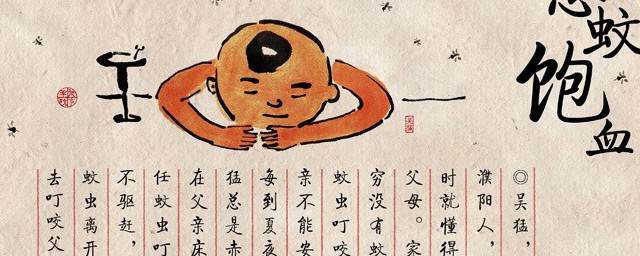 恣蚊
饱
血
吴猛
◎吴猛，
濮阳人，
时就懂得
父母。家
穷没有蚊
蚊虫叮咬
亲不能安
每到夏夜
猛总是赤
在父亲床
任蚊虫叮
不驱赶，
蚊虫离开
去叮咬父